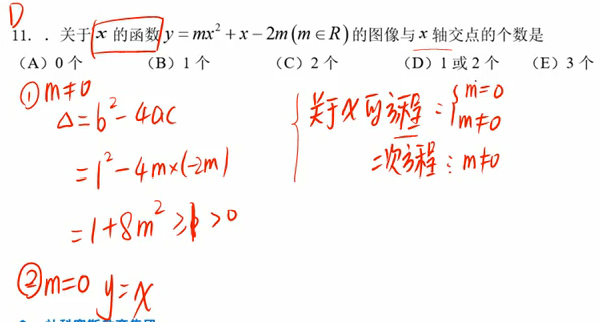 D
11. . 关于 x 的函数 y = mx² + x − 2m (m ∈ R) 的图像与 x 轴交点的个数是
（A）0 个 （B）1 个 （C）2 个 （D）1 或 2 个 （E）3 个
① m≠0
Δ = b² − 4ac
= 1² − 4m×(−2m)
= 1 + 8m² ≥ 1 > 0
② m=0 y = x
关于 x 的方程 : { m=0
m≠0
二次方程 : m≠0